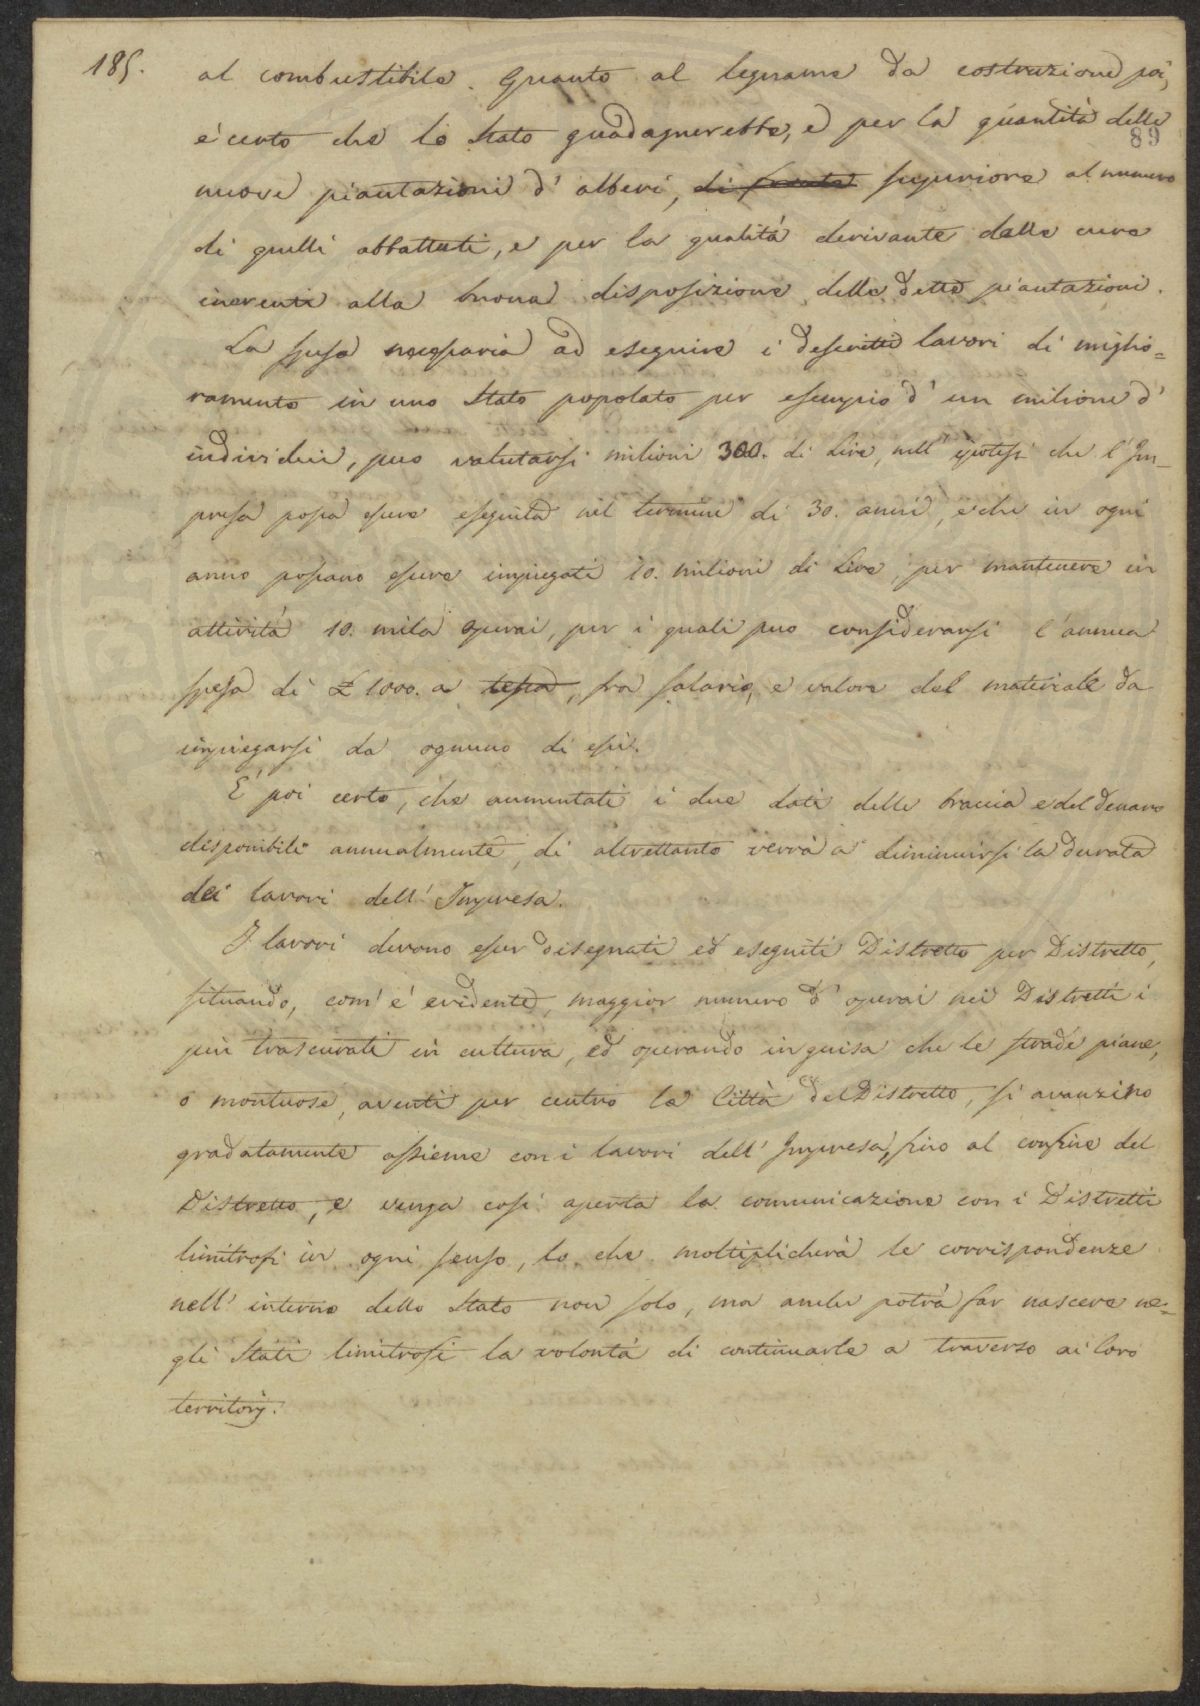 185.
al combustibile. Quanto al legname da costruzione poi,
è certo che lo Stato guadagnerebbe, e per la quantità delle
89
nuove piantazioni d' alberi, superiore al numero
di quelli abbattuti, e per la qualità derivante dalle cure
inerenti alla buona disposizione delle dette piantazioni.
La spesa necessaria ad eseguire i descritti lavori di miglio=
ramento in uno Stato popolato per esempio d' un milione d'
individui, può valutarsi milioni 300. di Lire, nell' ipotesi che l' Im-
presa possa essere eseguita nel termine di 30. anni, e che in ogni
anno possano essere impiegati 10. milioni di Lire, per mantenere in
attività 10. mila operai, per i quali può considerarsi l' annua
spesa di £ 1000. a testa, fra salario, e valore del materiale da
impiegarsi da ognuno di essi.
E' poi certo, che aumentati i due dati delle braccia e del denaro
disponibili annualmente, di altrettanto verrà a diminuirsi la durata
dei lavori dell' Impresa.
I lavori devono esser disegnati ed eseguiti Distretto per Distretto,
situando, com' è evidente, maggior numero d' operai nei Distretti i
più trascurati in cultura, ed operando in guisa che le strade piane,
o montuose, aventi per centro la Città del Distretto, si avanzino
gradatamente assieme con i lavori dell' Impresa, fino al confine del
Distretto, e venga così aperta la comunicazione con i Distretti
limitrofi in ogni senso, lo che moltiplicherà le corrispondenze
nell' interno dello Stato non solo, ma anche potrà far nascere ne=
gli Stati limitrofi la volontà di continuarle a traverso ai loro
territorj.